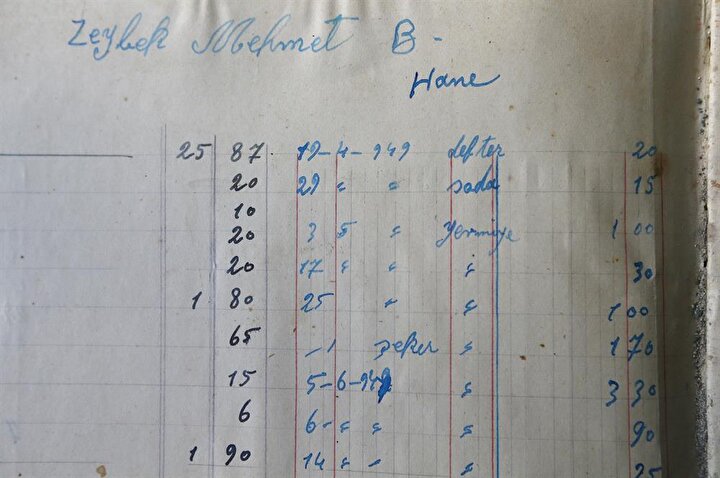 Zeybek Mehmet B-
Hane
25 87 19-4-949 defter 20
20 29 " " soda 15
10
20 3 5 " Yevmiye 1 00
20 17 " " " 30
1 80 25 " " 1 00
65 -1 şeker " 1 70
15 5-6-949 " 3 30
6 6- " " " 90
1 90 14 " " " 25